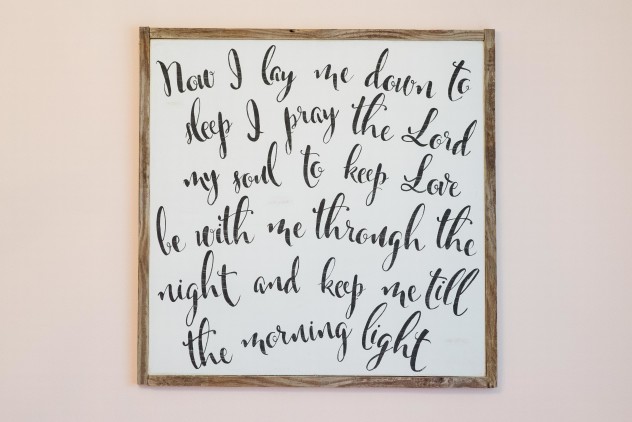 Now I lay me down to
sleep I pray the Lord
my soul to keep Love
be with me through the
night and keep me till
the morning light